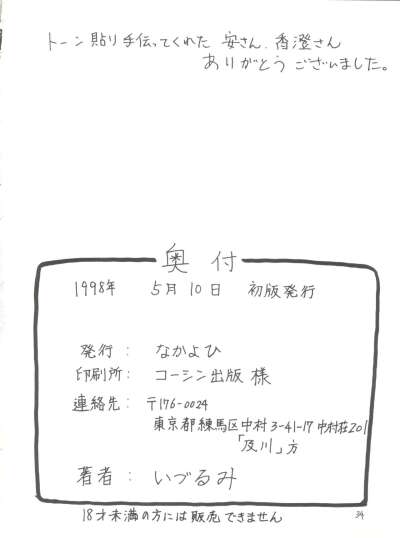 トーン貼り手伝ってくれた 安さん、香澄さん
ありがとう ございました。
奥付
1998年 5月10日 初版発行
発行： なかよひ
印刷所： コーシン出版 様
連絡先： 〒176-0024
東京都練馬区中村3-41-17 中村荘201
「及川」方
著者： いづるみ
18才未満の方には販売できません
34